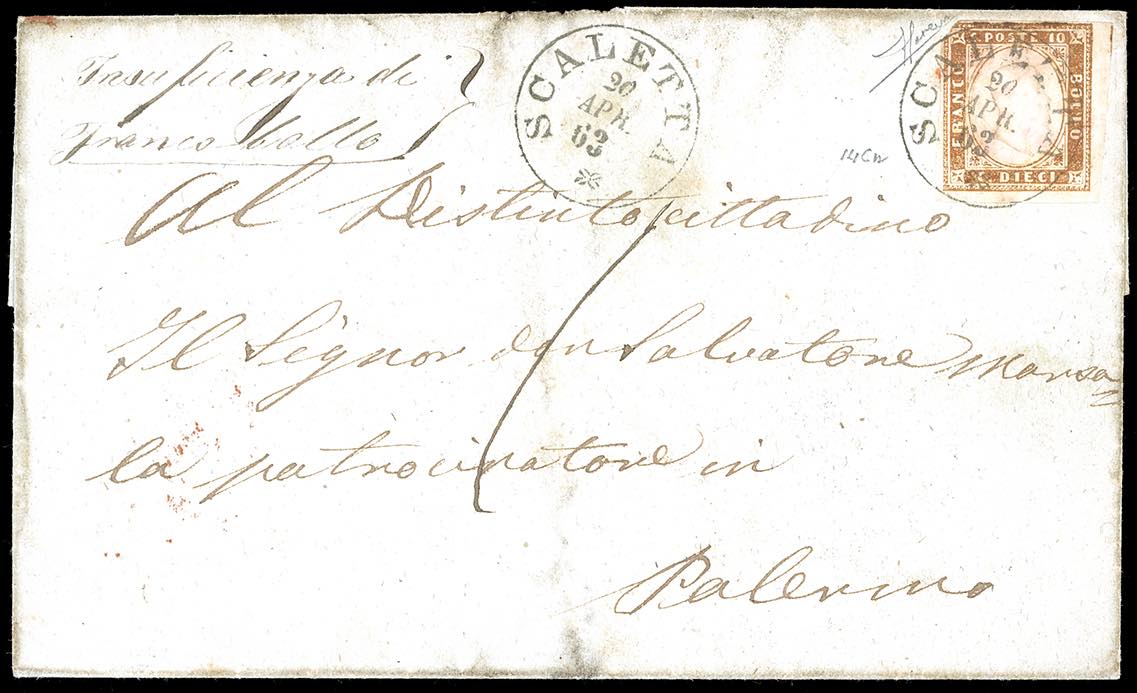 Insuficienza di
Franco bollo
SCALETTA
20
APR.
63
POSTE 10
FRANCO
BOLLO
DIECI
SCALETTA
20
APR.
63
14Cn
Al Distinto cittadino
Il Signor don Salvatore Marsa
la patrocinatore in
Palermo